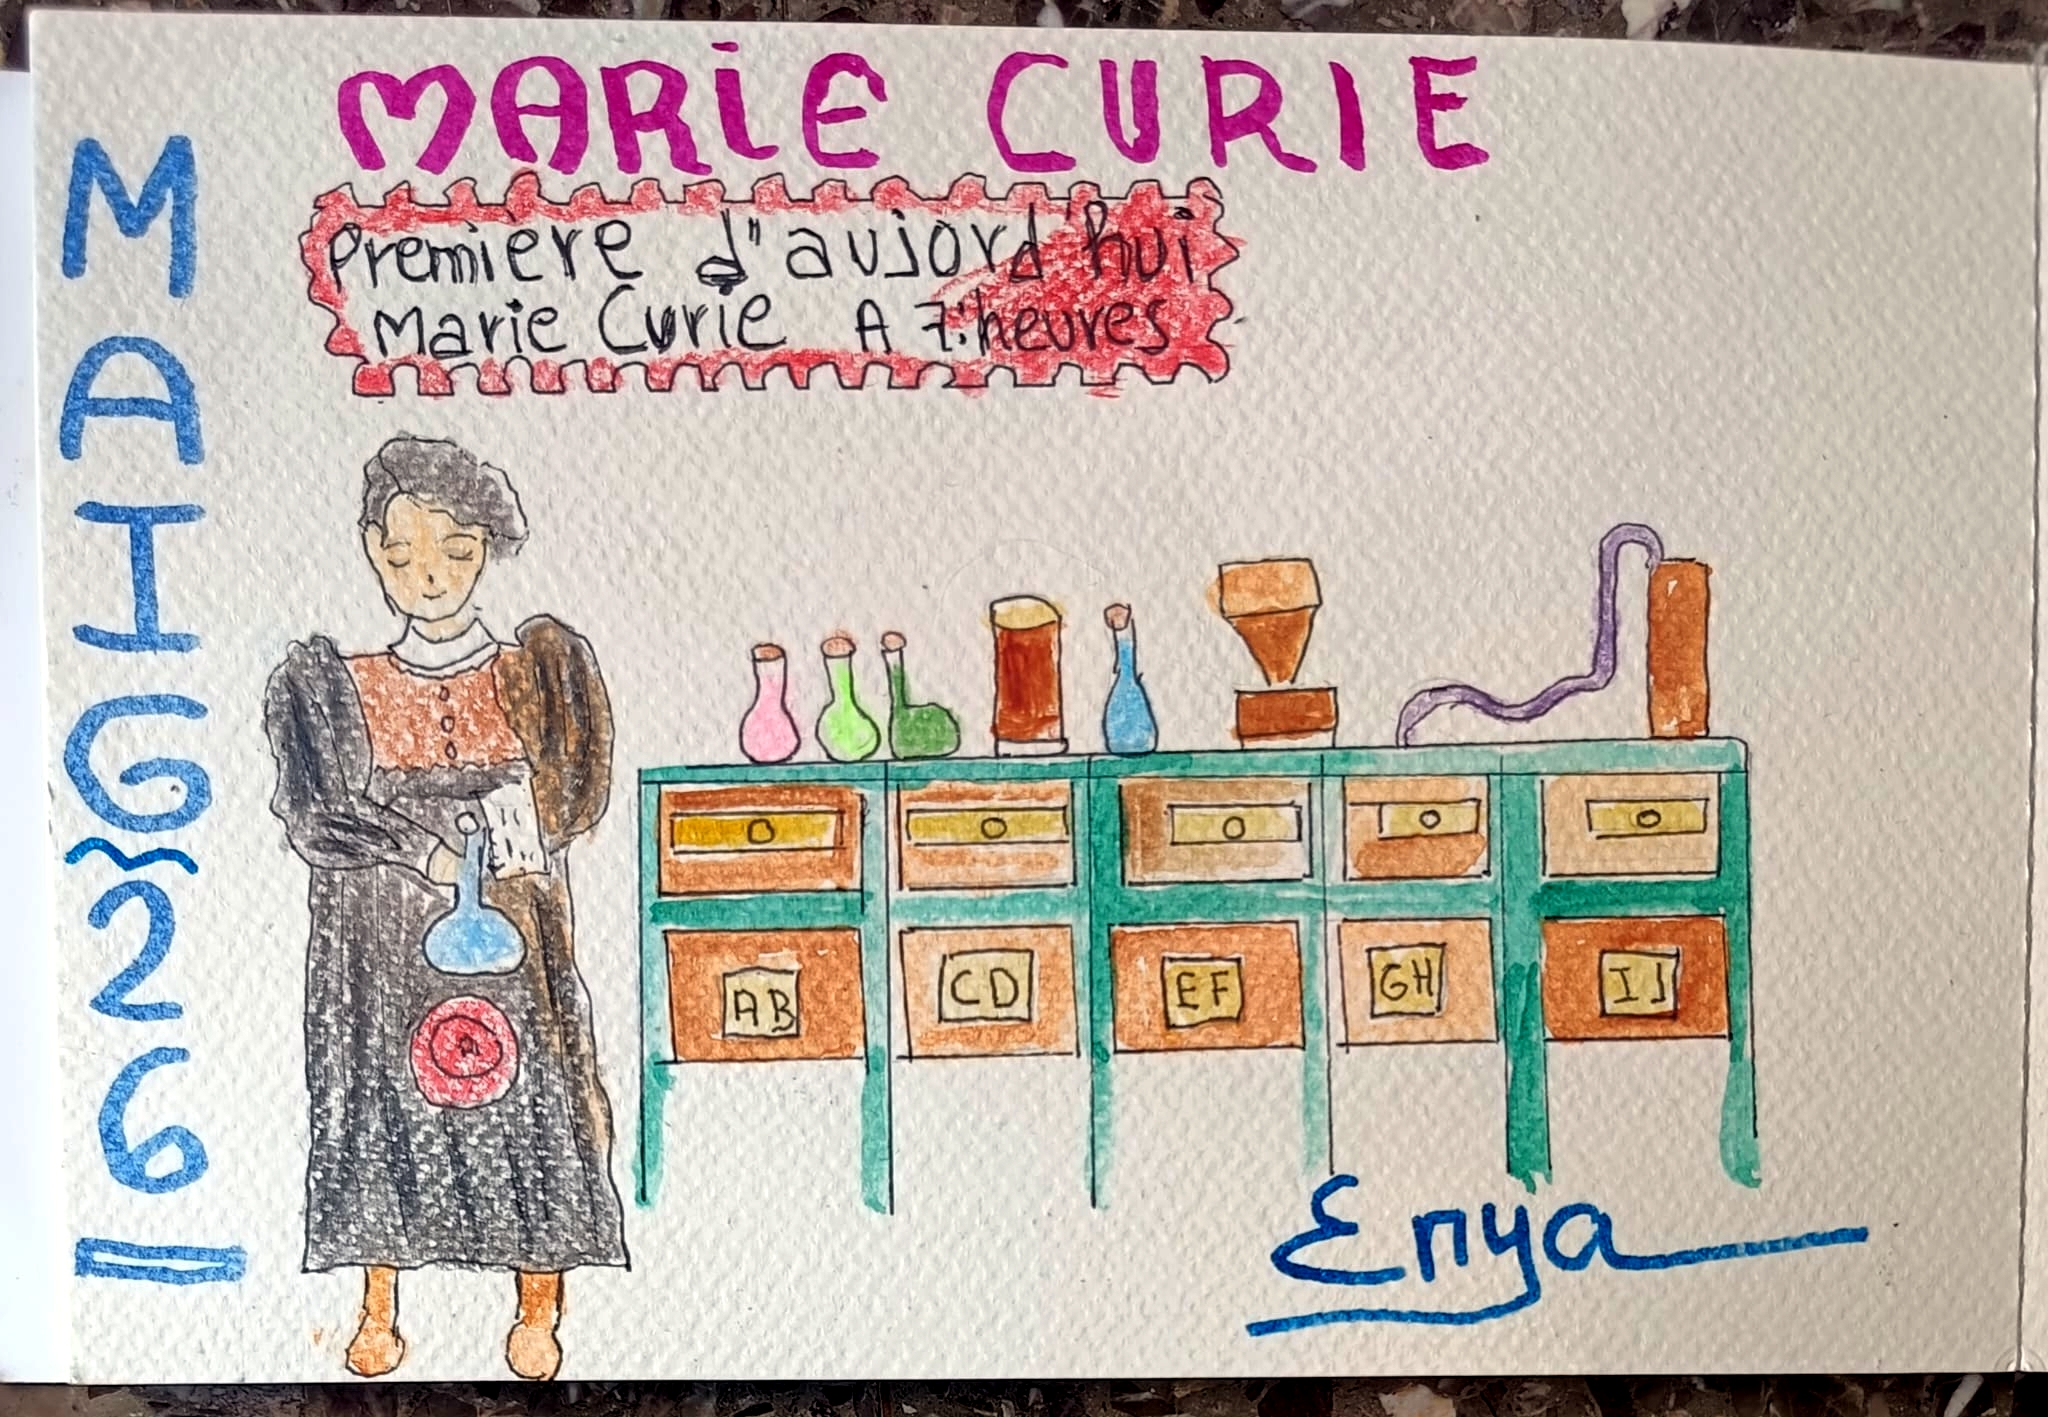 MARiE CURIE
Première d"aujord'hui
Marie Curie A 7:heures
MAIG~26
AB
CD
EF
GH
IJ
Enya